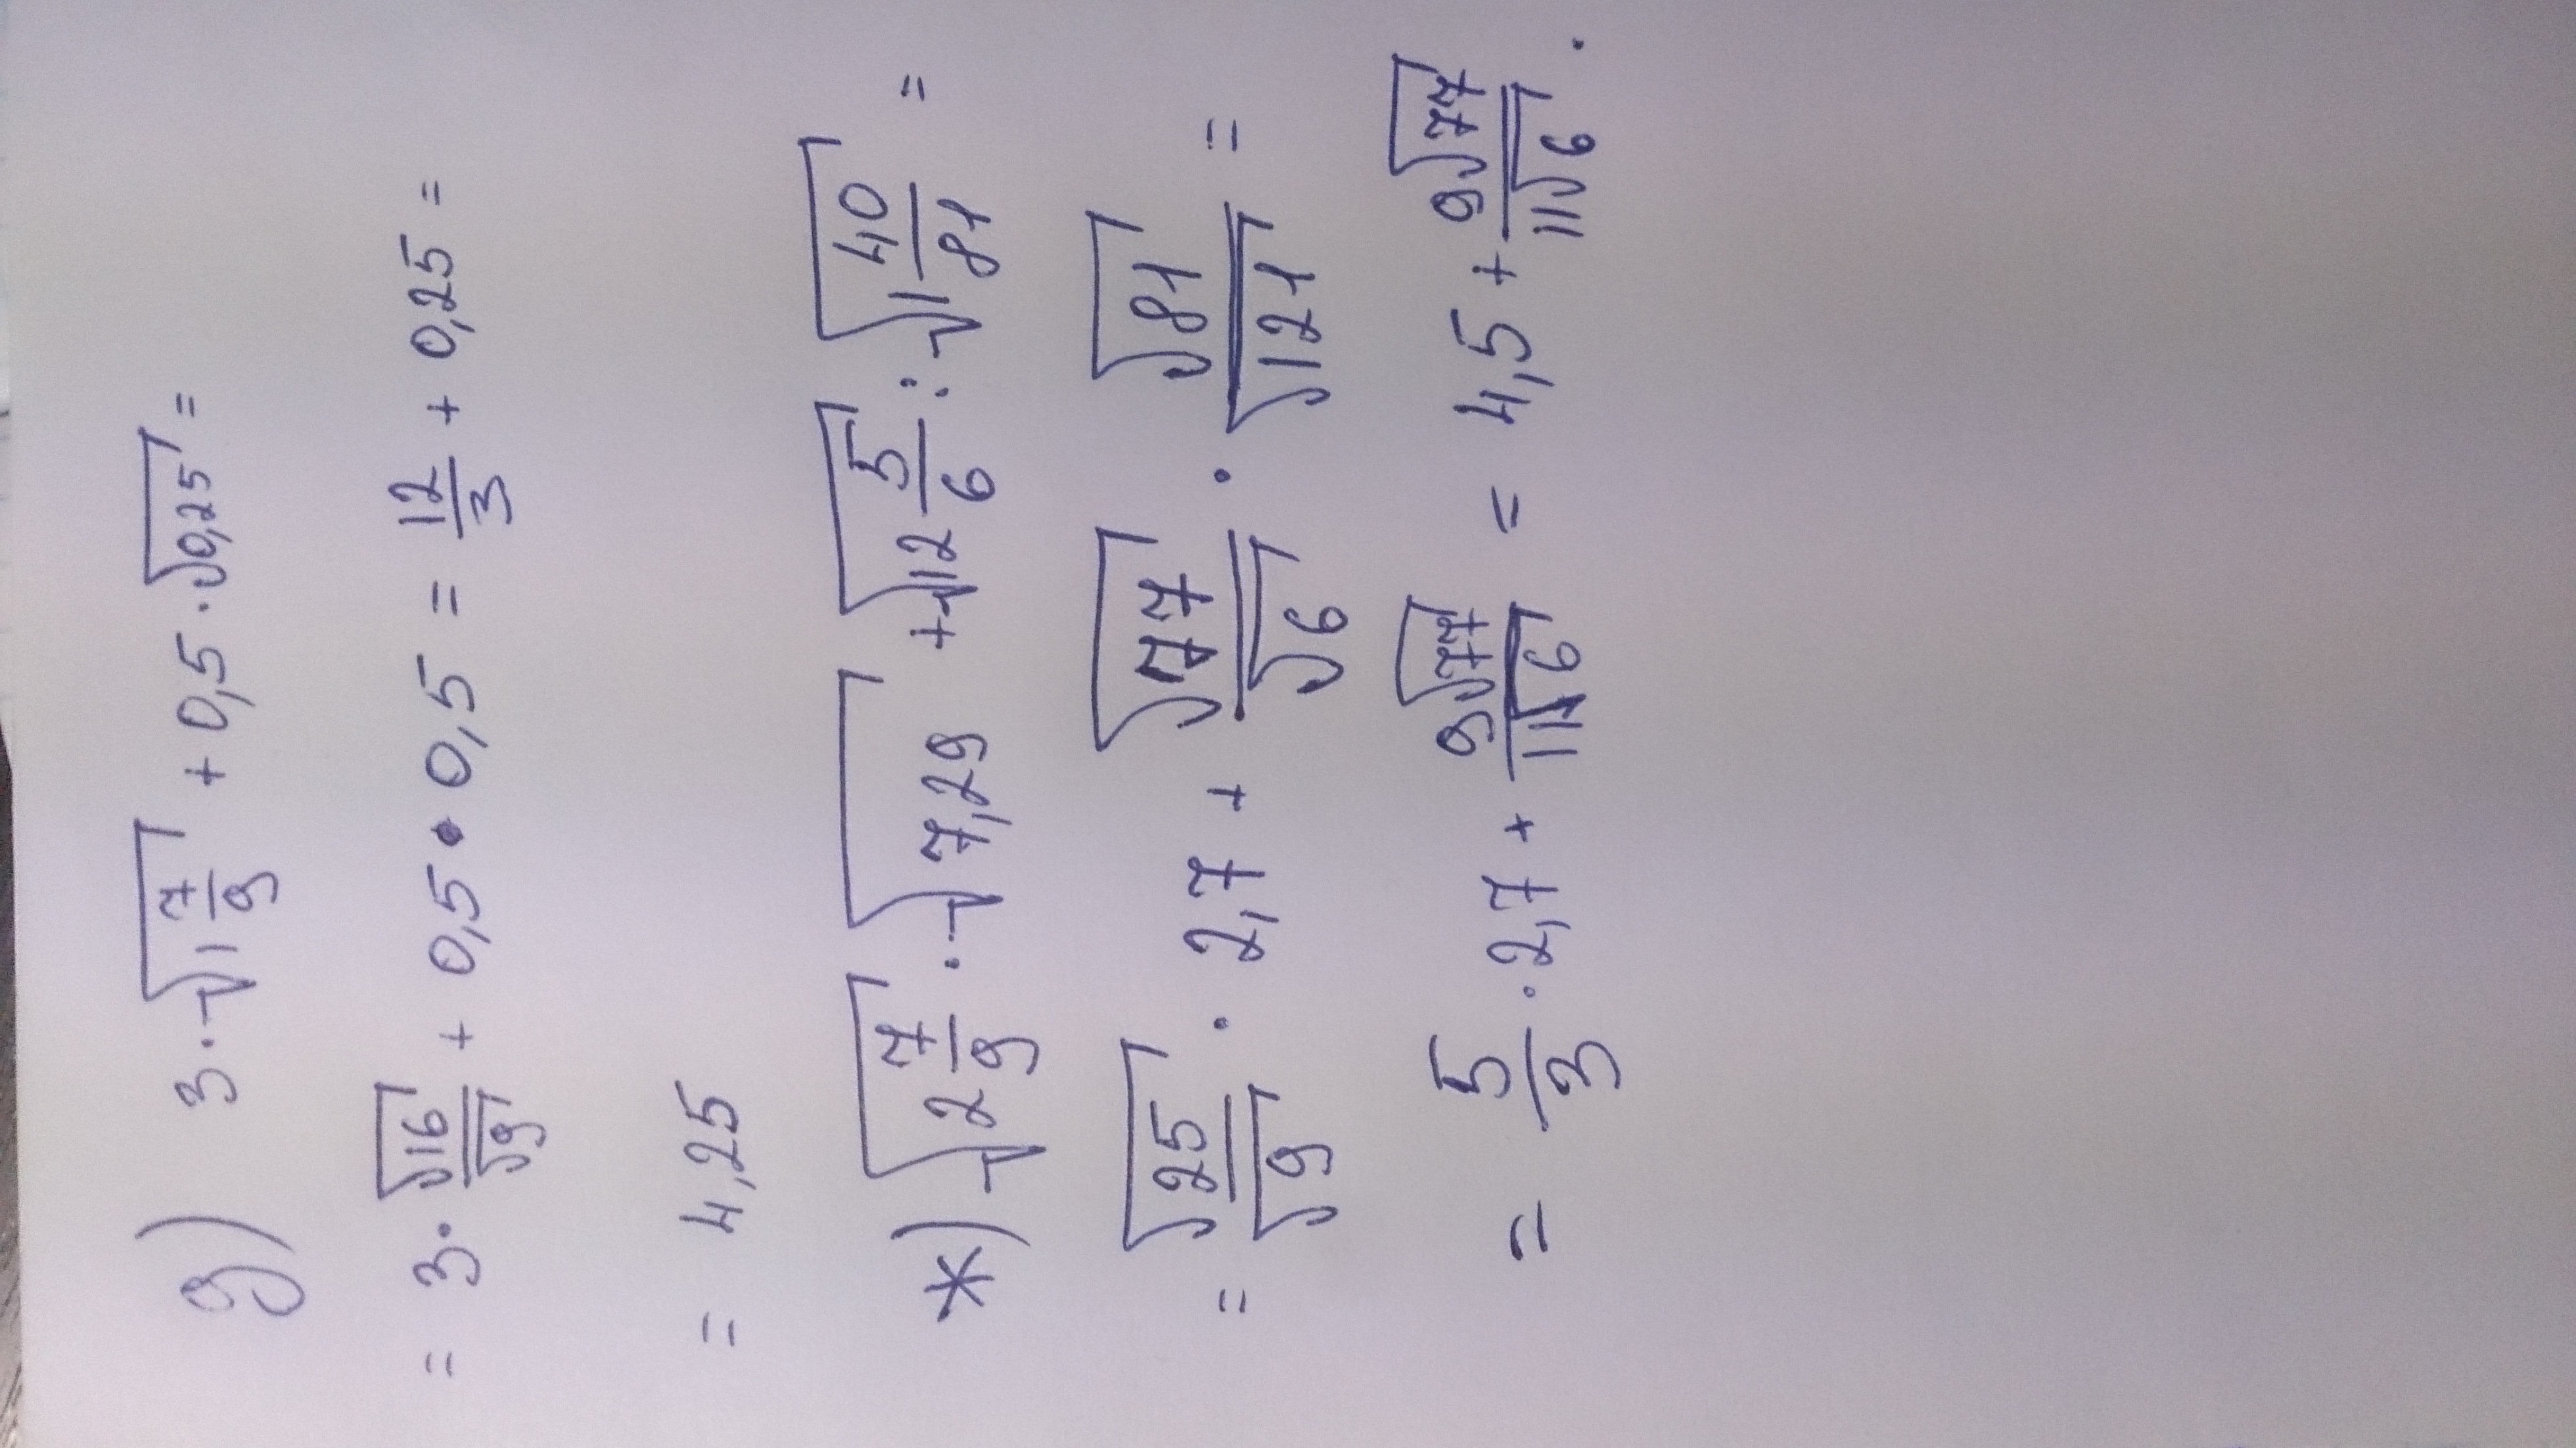 g) 3·√(1 7/9) + 0,5·√0,25 =
= 3·√16/√9 + 0,5·0,5 = 12/3 + 0,25 =
= 4,25
ж) √(2 7/9)·√7,29 + √(12 5/6) : √(1 40/81) =
= √25/√9 · 2,7 + √77/√6 · √81/√121 =
= 5/3 · 2,7 + 9√77/11√6 = 4,5 + 9√77/11√6.